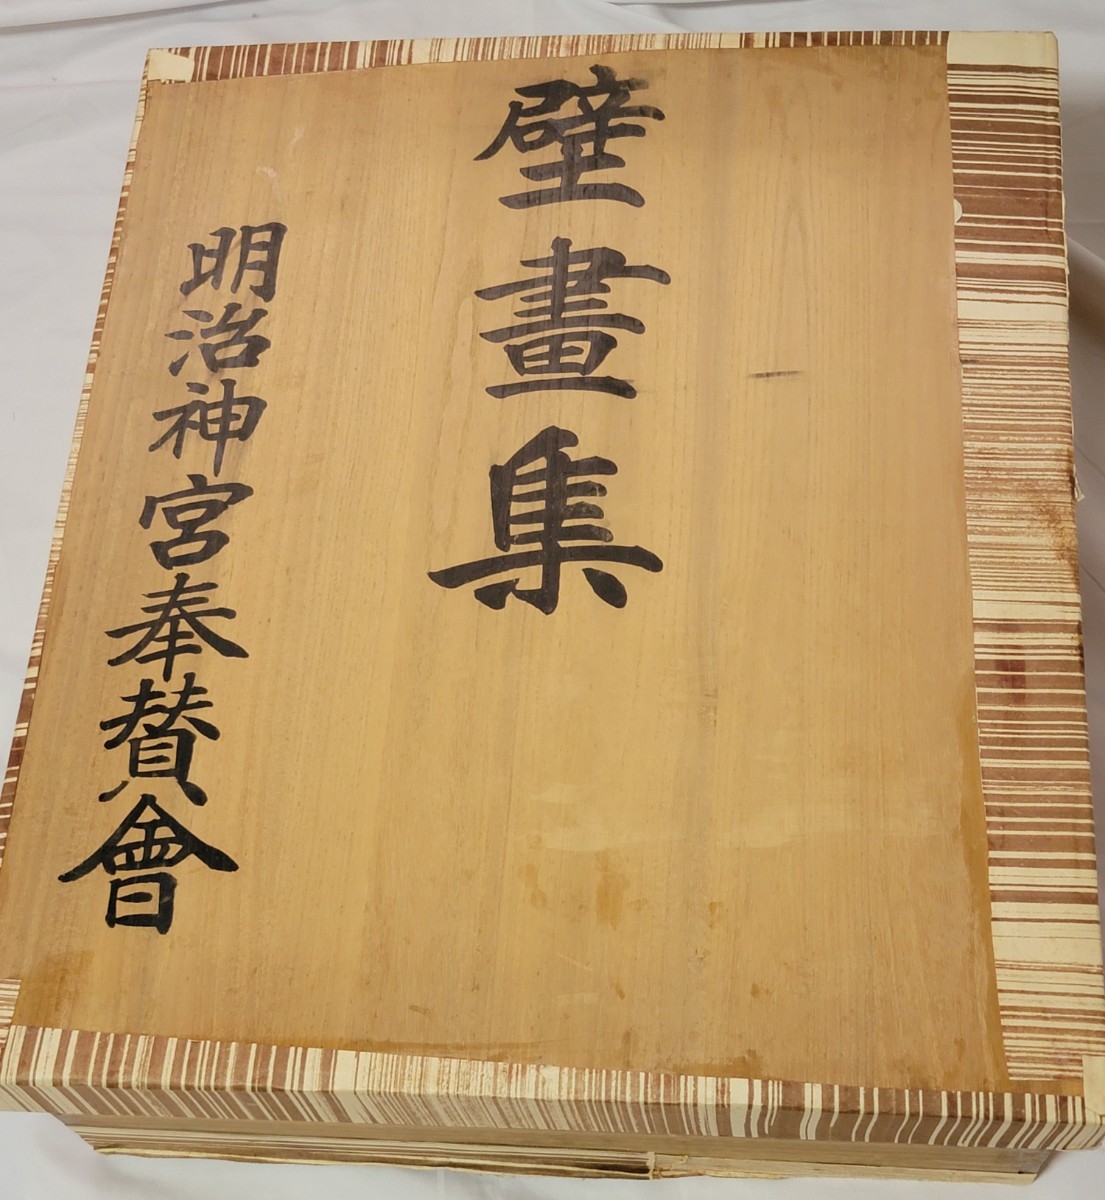 壁畫集
明治神宮奉賛會